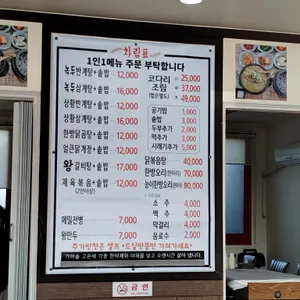 차림표
1인1메뉴 주문 부탁합니다
녹두반계탕+솥밥 12,000
녹두삼계탕+솥밥 16,000
상황반계탕+솥밥 12,000
상황삼계탕+솥밥 16,000
한방닭곰탕+솥밥 12,000
얼큰닭계장+솥밥 12,000
왕갈비탕+솥밥 17,000
제육볶음+솥밥 12,000
(2인이상)
메밀전병 7,000
왕만두 7,000
코다리 소 25,000
조림 중 37,000
(밥은별도) 대 49,000
공기밥 1,000
솥밥 3,000
두부추가 2,000
떡추가 3,000
시래기추가 5,000
닭볶음탕 40,000
한방오리 70,000
능이한방오리 80,000
소주 4,000
맥주 4,000
막걸리 4,000
음료수 2,000
추가반찬은 셀프·드실만큼만 가져가세요~
금연